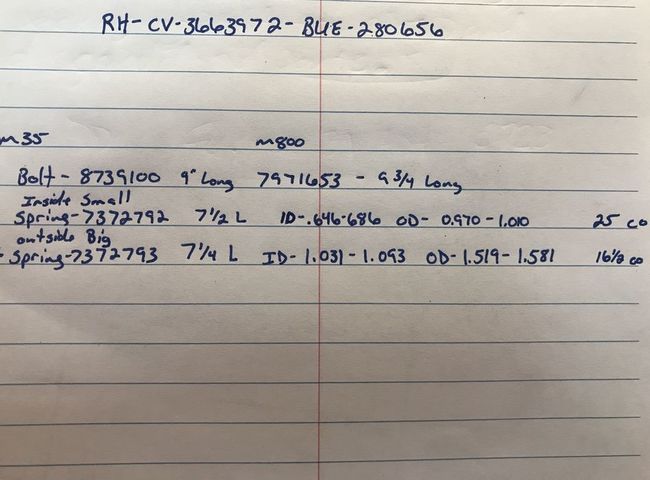 RH-CV-3663972-BUE-280656
m35 m800
Bolt - 8739100 9" Long 7971653 - 9 3/4 Long
Inside Small
Spring-7372792 7 1/2 L ID-.646-686 OD- 0.970-1.010 25 co
outside Big
Spring-7372793 7 1/4 L ID- 1.031-1.093 OD-1.519-1.581 16 1/2 co